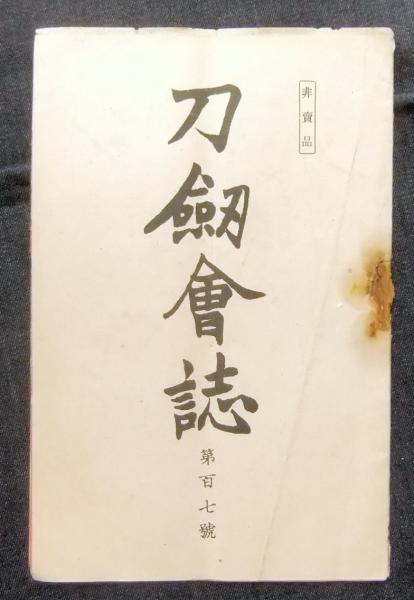 非賣品
刀劔會誌
第百七號